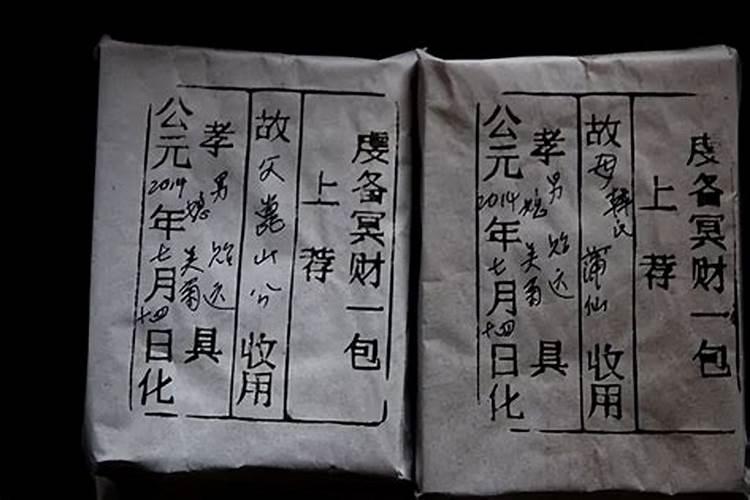 虔备冥财一包
上荐
故父嵩山公收用
孝男 媳 贻远 美菊 具
公元2014年七月十四日化
虔备冥财一包
上荐
故母韩氏蒲仙收用
孝男 媳 贻远 美菊 具
公元2014年七月十四日化